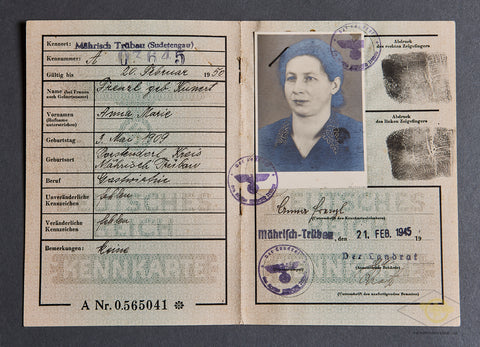 Kennort: Mährisch Trübau (Sudetengau)
Kennummer: A 02645
Gültig bis 20. Februar 1950
Name (bei Frauen auch Geburtsname)
geb. Kunert
Vornamen
(Rufname unterstreichen)
Anna Marie
Geburtstag 3. Mai 1909
Geburtsort
Kreis
Mährisch Trübau
Beruf Gastwirtin
Unveränderliche Kennzeichen fehlen
Veränderliche Kennzeichen fehlen
Bemerkungen: Keine
KENNKARTE
A Nr. 0.565041
Abdruck
des rechten Zeigefingers
Abdruck
des linken Zeigefingers
Anna
(Unterschrift des Kennkarteninhabers)
Mährisch-Trübau, den 21. FEB. 1945 19
Der Landrat
(Ausstellende Behörde)
(Unterschrift des ausfertigenden Beamten)
KENNKARTE